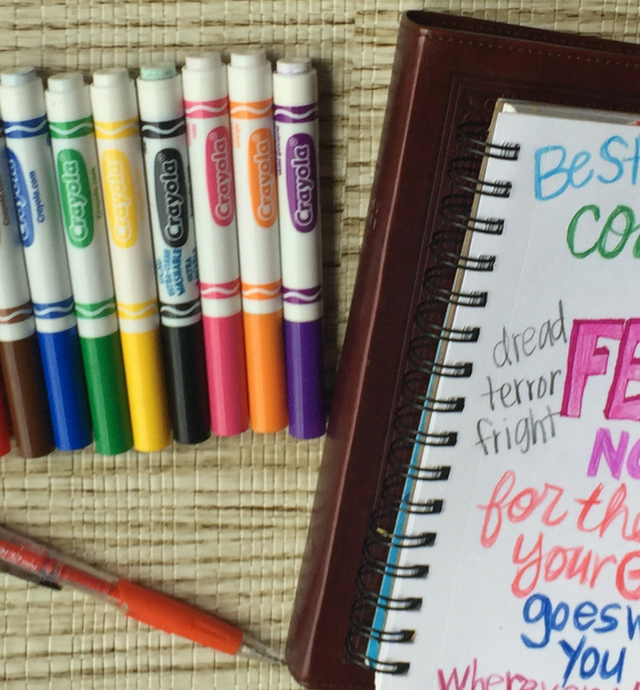 Crayola
Crayola.com
Crayola
Crayola
Crayola
Crayola
Crayola
Crayola
WASHABLE
BeSt
co
dread
FE
terror
fright
NO
for the
your
goes
you